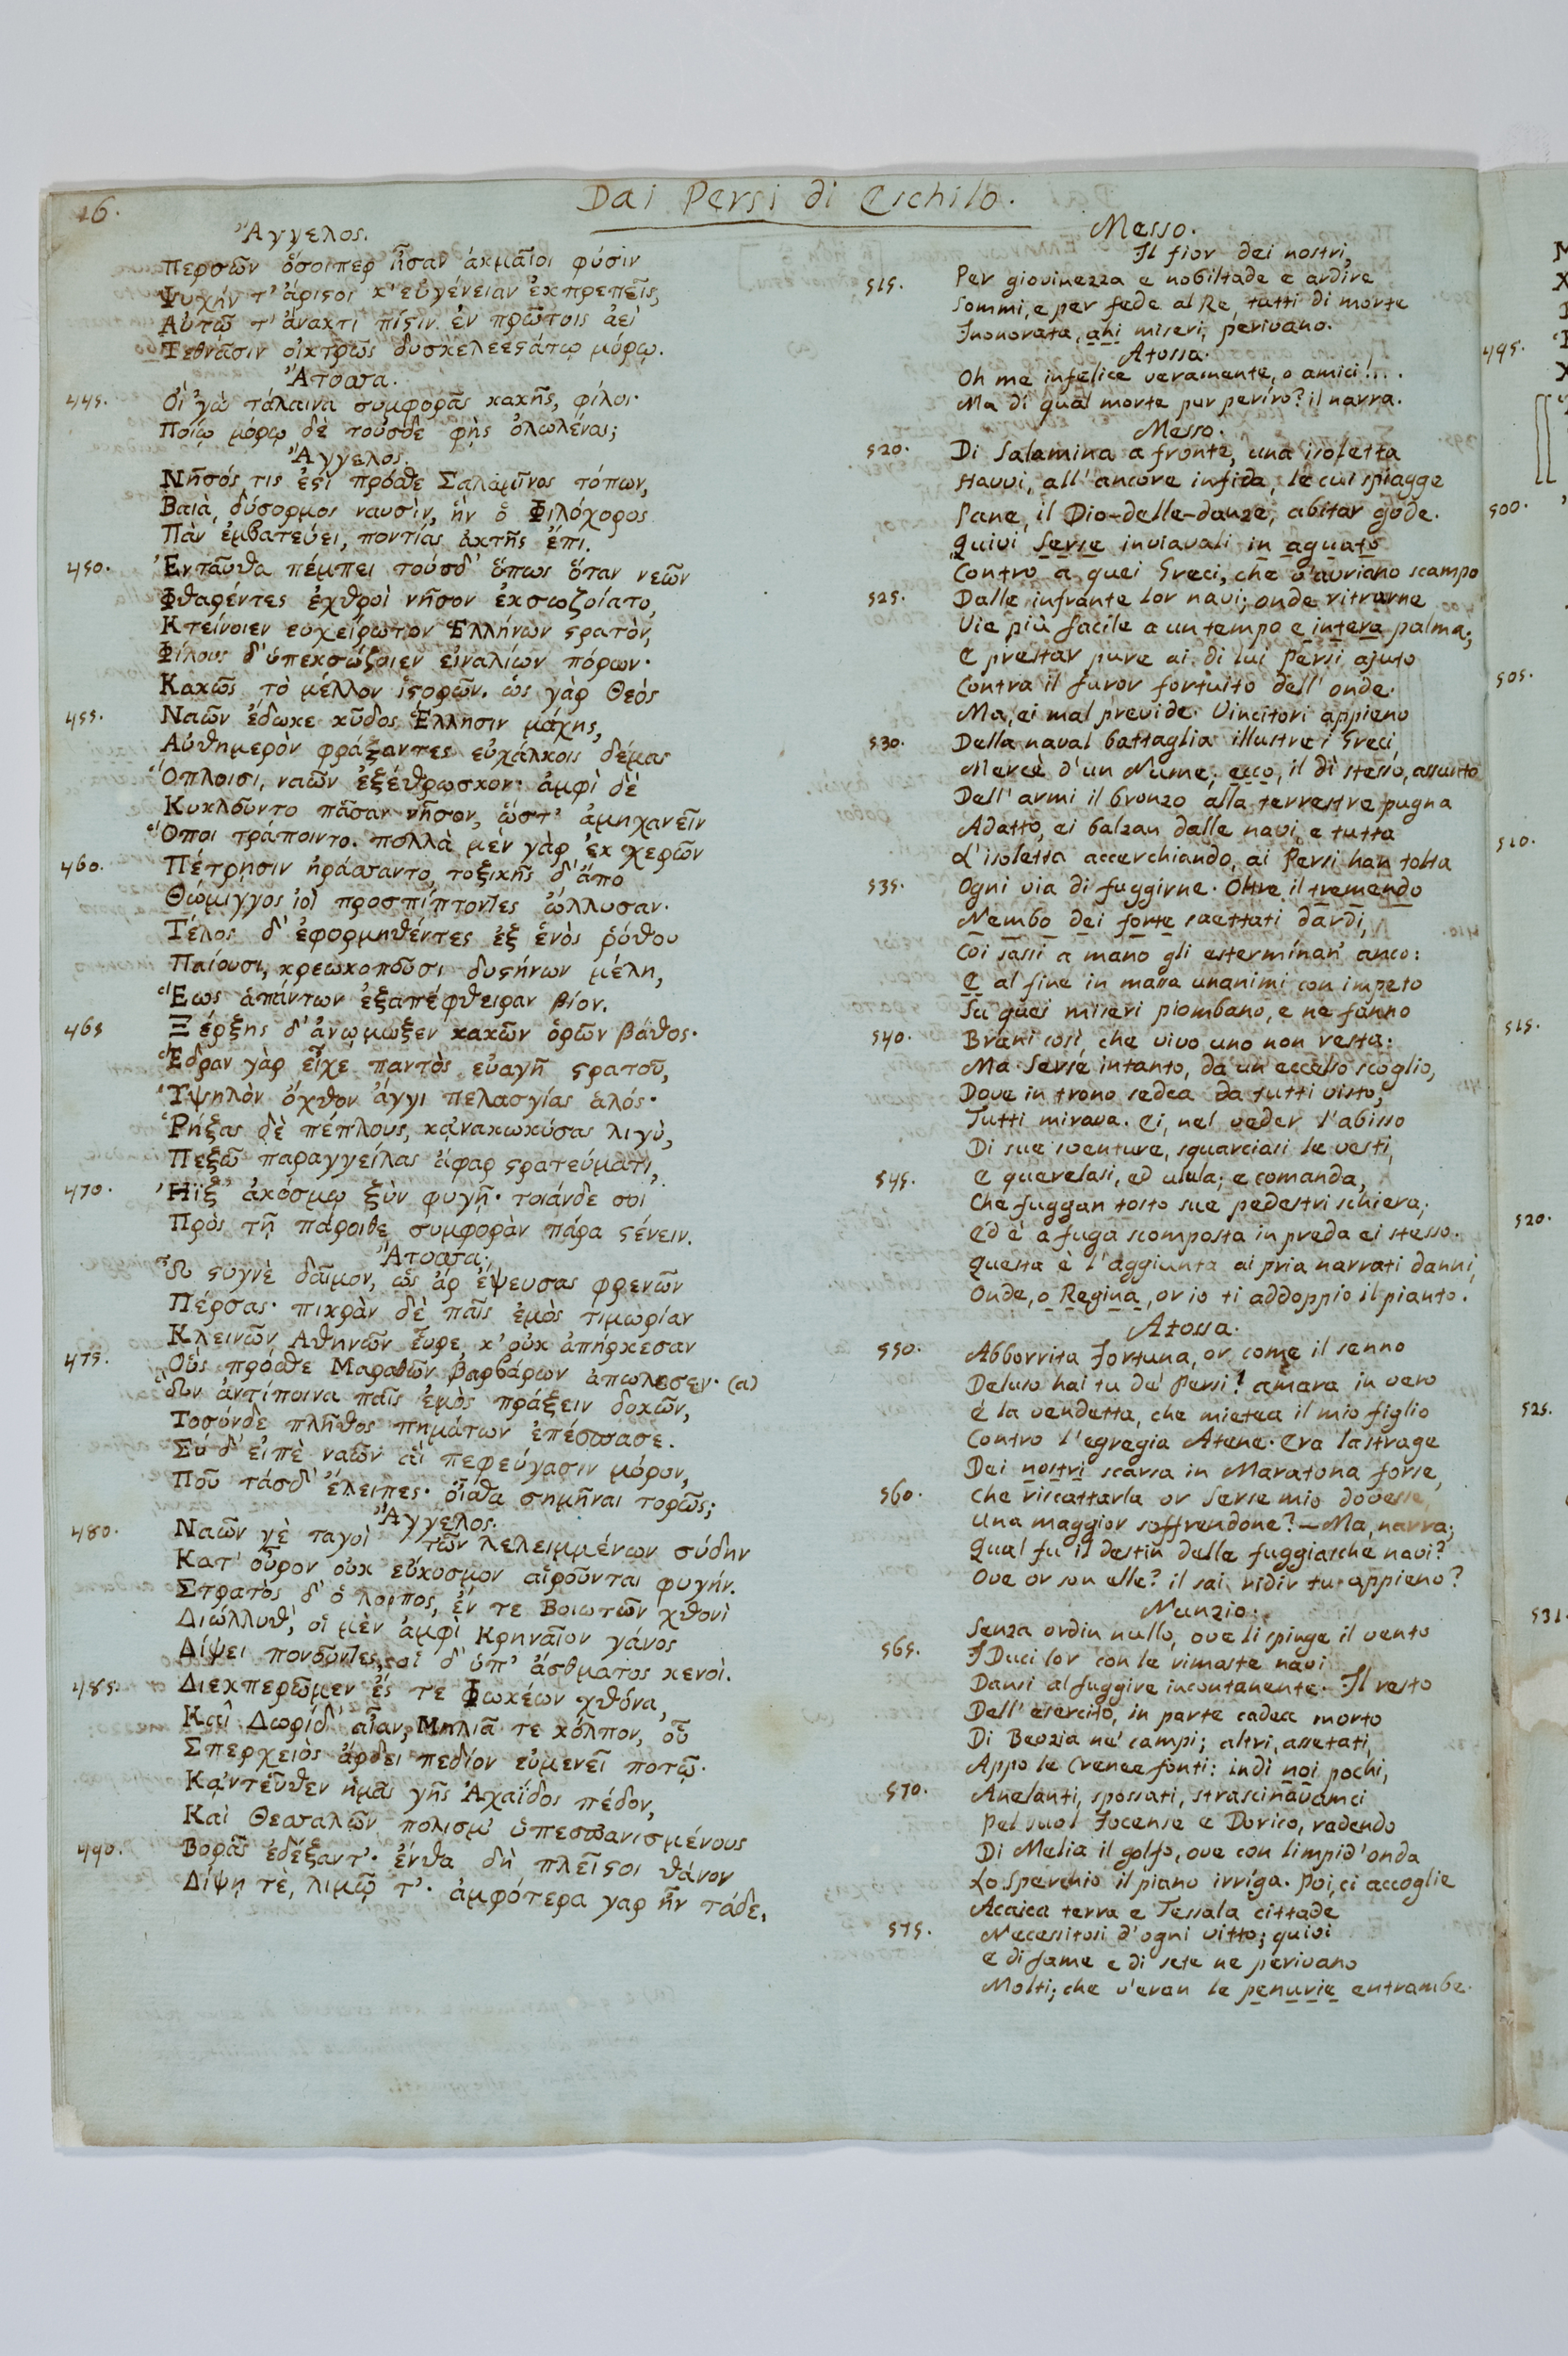 16.
Dai Persi di Eschilo.
Ἄγγελος.
Περσῶν ὅσοιπερ ἦσαν ἀκμαῖοι φύσιν
Ψυχήν τ' ἄριϛοι κ' εὐγένειαν ἐκπρεπεῖς,
Αὐτῷ τ' ἄνακτι πίϛιν ἐν πρώτοις ἀεὶ
Τεθνᾶσιν οἰκτρῶς δυσκλεεϛάτῳ μόρῳ.
Ἄτοσσα.
445. Οἲ 'γὼ τάλαινα συμφορᾶς κακῆς, φίλοι·
Ποίῳ μόρῳ δὲ τούσδε φῂς ὀλωλέναι;
Ἄγγελος.
Νῆσός τις ἐϛὶ πρόσθε Σαλαμῖνος τόπων,
Βαιὰ, δύσορμος ναυσὶν, ἣν ὁ Φιλόχορος
Πὰν ἐμβατεύει, ποντίας ἀκτῆς ἔπι.
450. Ἐνταῦθα πέμπει τούσδ' ὅπως ὅταν νεῶν
Φθαρέντες ἐχθροὶ νῆσον ἐκσωζοίατο,
Κτείνοιεν εὐχείρωτον Ἑλλήνων ϛρατὸν,
Φίλους δ' ὑπεκσώζοιεν εἰναλίων πόρων·
Κακῶς τὸ μέλλον ἱϛορῶν. ὡς γὰρ Θεὸς
455. Ναῶν ἔδωκε κῦδος Ἕλλησιν μάχης,
Αὐθημερὸν φράξαντες εὐχάλκοις δέμας
Ὅπλοισι, ναῶν ἐξέθρωσκον· ἀμφὶ δὲ
Κυκλοῦντο πᾶσαν νῆσον, ὥστ' ἀμηχανεῖν
Ὅποι τράποιντο. πολλὰ μὲν γὰρ ἐκ χερῶν
460. Πέτρῃσιν ἠράσσαντο, τοξικῆς δ' ἄπο
Θώμιγγος ἰοὶ προσπίπτοντες ὤλλυσαν.
Τέλος δ' ἐφορμηθέντες ἐξ ἑνὸς ῥόθου
Παίουσι, κρεωκοποῦσι δυϛήνων μέλη,
Ἕως ἁπάντων ἐξαπέφθειραν βίον.
465 Ξέρξης δ' ἀνῴμωξεν κακῶν ὁρῶν βάθος·
Ἕδραν γὰρ εἶχε παντὸς εὐαγῆ ϛρατοῦ,
Ὑψηλὸν ὄχθον ἄγχι πελασγίας ἁλός·
Ῥήξας δὲ πέπλους, κἀνακωκύσας λιγὺ,
Πεζῷ παραγγείλας ἄφαρ ϛρατεύματι,
470. Ἤϊξ' ἀκόσμῳ ξὺν φυγῇ· τοιάνδε σοὶ
Πρὸς τῇ πάροιθε συμφορὰν πάρα ϛένειν.
Ἄτοσσα.
Ὦ ϛυγνὲ δαῖμον, ὡς ἄρ' ἔψευσας φρενῶν
Πέρσας· πικρὰν δὲ παῖς ἐμὸς τιμωρίαν
Κλεινῶν Ἀθηνῶν εὗρε, κ' οὐκ ἀπήρκεσαν
475. Οὓς πρόσθε Μαραθὼν βαρβάρων ἀπώλεσεν· (a)
Ὧν ἀντίποινα παῖς ἐμὸς πράξειν δοκῶν,
Τοσόνδε πλῆθος πημάτων ἐπέσπασε.
Σὺ δ' εἰπὲ ναῶν αἳ πεφεύγασιν μόρον,
Ποῦ τάσδ' ἔλειπες· οἶσθα σημῆναι τορῶς;
Ἄγγελος.
480. Ναῶν γὲ ταγοὶ τῶν λελειμμένων σύδην
Κατ' οὖρον οὐκ εὔκοσμον αἴρονται φυγήν.
Στρατὸς δ' ὁ λοιπος, ἔν τε Βοιωτῶν χθονὶ
Διώλλυθ', οἱ μὲν ἀμφὶ κρηναῖον γάνος
Δίψει πονοῦντες, οἱ δ' ὑπ' ἄσθματος κενοὶ.
485. Διεκπερῶμεν ἔς τε Φωκέων χθόνα,
Καὶ Δωρίδ' αἶαν, Μηλιᾶ τε κόλπον, οὗ
Σπερχειὸς ἄρδει πεδίον εὐμενεῖ ποτῷ·
Κἀντεῦθεν ἡμᾶς γῆς Ἀχαΐδος πέδον,
Καὶ Θεσσαλῶν πολισμ' ὑπεσπανισμένους
490. Βορᾶς ἐδέξαντ'· ἔνθα δὴ πλεῖϛοι θάνον
Δίψῃ τὲ, λιμῷ τ'· ἀμφότερα γαρ ἦν τάδε.
Messo.
Il fior dei nostri,
515. Per giovinezza e nobiltade e ardire
Sommi, e per fede al Re, tutti di morte
Inonorata, ahi miseri, perivano.
Atossa.
Oh me infelice veramente, o amici!...
Ma di qual morte pur periro? il narra.
Messo.
520. Di Salamina a fronte, una isoletta
Stavvi, all'ancore infida, le cui spiagge
Pane, il Dio-delle-danze, abitar gode.
Quivi Serse inviavali in aguato
Contro a quei Greci, che v'avriano scampo
525. Dalle infrante lor navi; onde ritrarne
Vie più facile a un tempo e intera palma;
E prestar pure ai di lui Persi ajuto
Contra il furor fortuito dell'onde.
Ma, ei mal previde. Vincitori appieno
530. Della naval battaglia illustre i Greci,
Mercè d'un Nume; ecco, il dì stesso, assunto
Dell'armi il bronzo alla terrestre pugna
Adatto, ei balzan dalle navi, e tutta
L'isoletta accerchiando, ai Persi han tolta
535. Ogni via di fuggirne. Oltre il tremendo
Nembo dei forte saettati dardi,
Coi sassi a mano gli esterminan' anco:
E al fine in massa unanimi con impeto
Su quei miseri piombano, e ne fanno
540. Brani così, che vivo uno non resta.
Ma Serse intanto, da un eccelso scoglio,
Dove in trono sedea da tutti visto,
Tutti mirava. Ei, nel veder l'abisso
Di sue sventure, squarciasi le vesti,
545. E querelasi, ed ulula; e comanda,
Che fuggan tosto sue pedestri schiera;
Ed è a fuga scomposta in preda ei stesso.
Questa è l'aggiunta ai pria narrati danni,
Onde, o Regina, or io ti addoppio il pianto.
Atossa.
550. Abborrita Fortuna, or come il senno
Deluso hai tu de' Persi! amara in vero
è la vendetta, che mietea il mio figlio
Contro l'egregia Atene. Era la strage
Dei nostri scarsa in Maratona forse,
560. Che riscattarla or Serse mio dovesse,
Una maggior soffrendone?—Ma, narra;
Qual fu il destin delle fuggiasche navi?
Ove or son elle? il sai ridir tu appieno?
Nunzio.
Senza ordin nullo, ove li spinge il vento
565. I Duci lor con le rimaste navi
Dansi al fuggire incontanente. Il resto
Dell'esercito, in parte cadea morto
Di Beozia ne' campi; altri, assetati,
Appo le Crenee fonti: indi noi pochi,
570. Anelanti, spossati, strascinavamci
Pel suol Focense e Dorico, radendo
Di Melia il golfo, ove con limpid'onda
Lo Sperchio il piano irriga. Poi, ci accoglie
Acaica terra e Tessala cittade
575. Necessitosi d'ogni vitto; quivi
E di fame e di sete ne perivano
Molti; che v'eran le penurie entrambe.
495.
500.
505.
510.
515.
520.
525.
531.